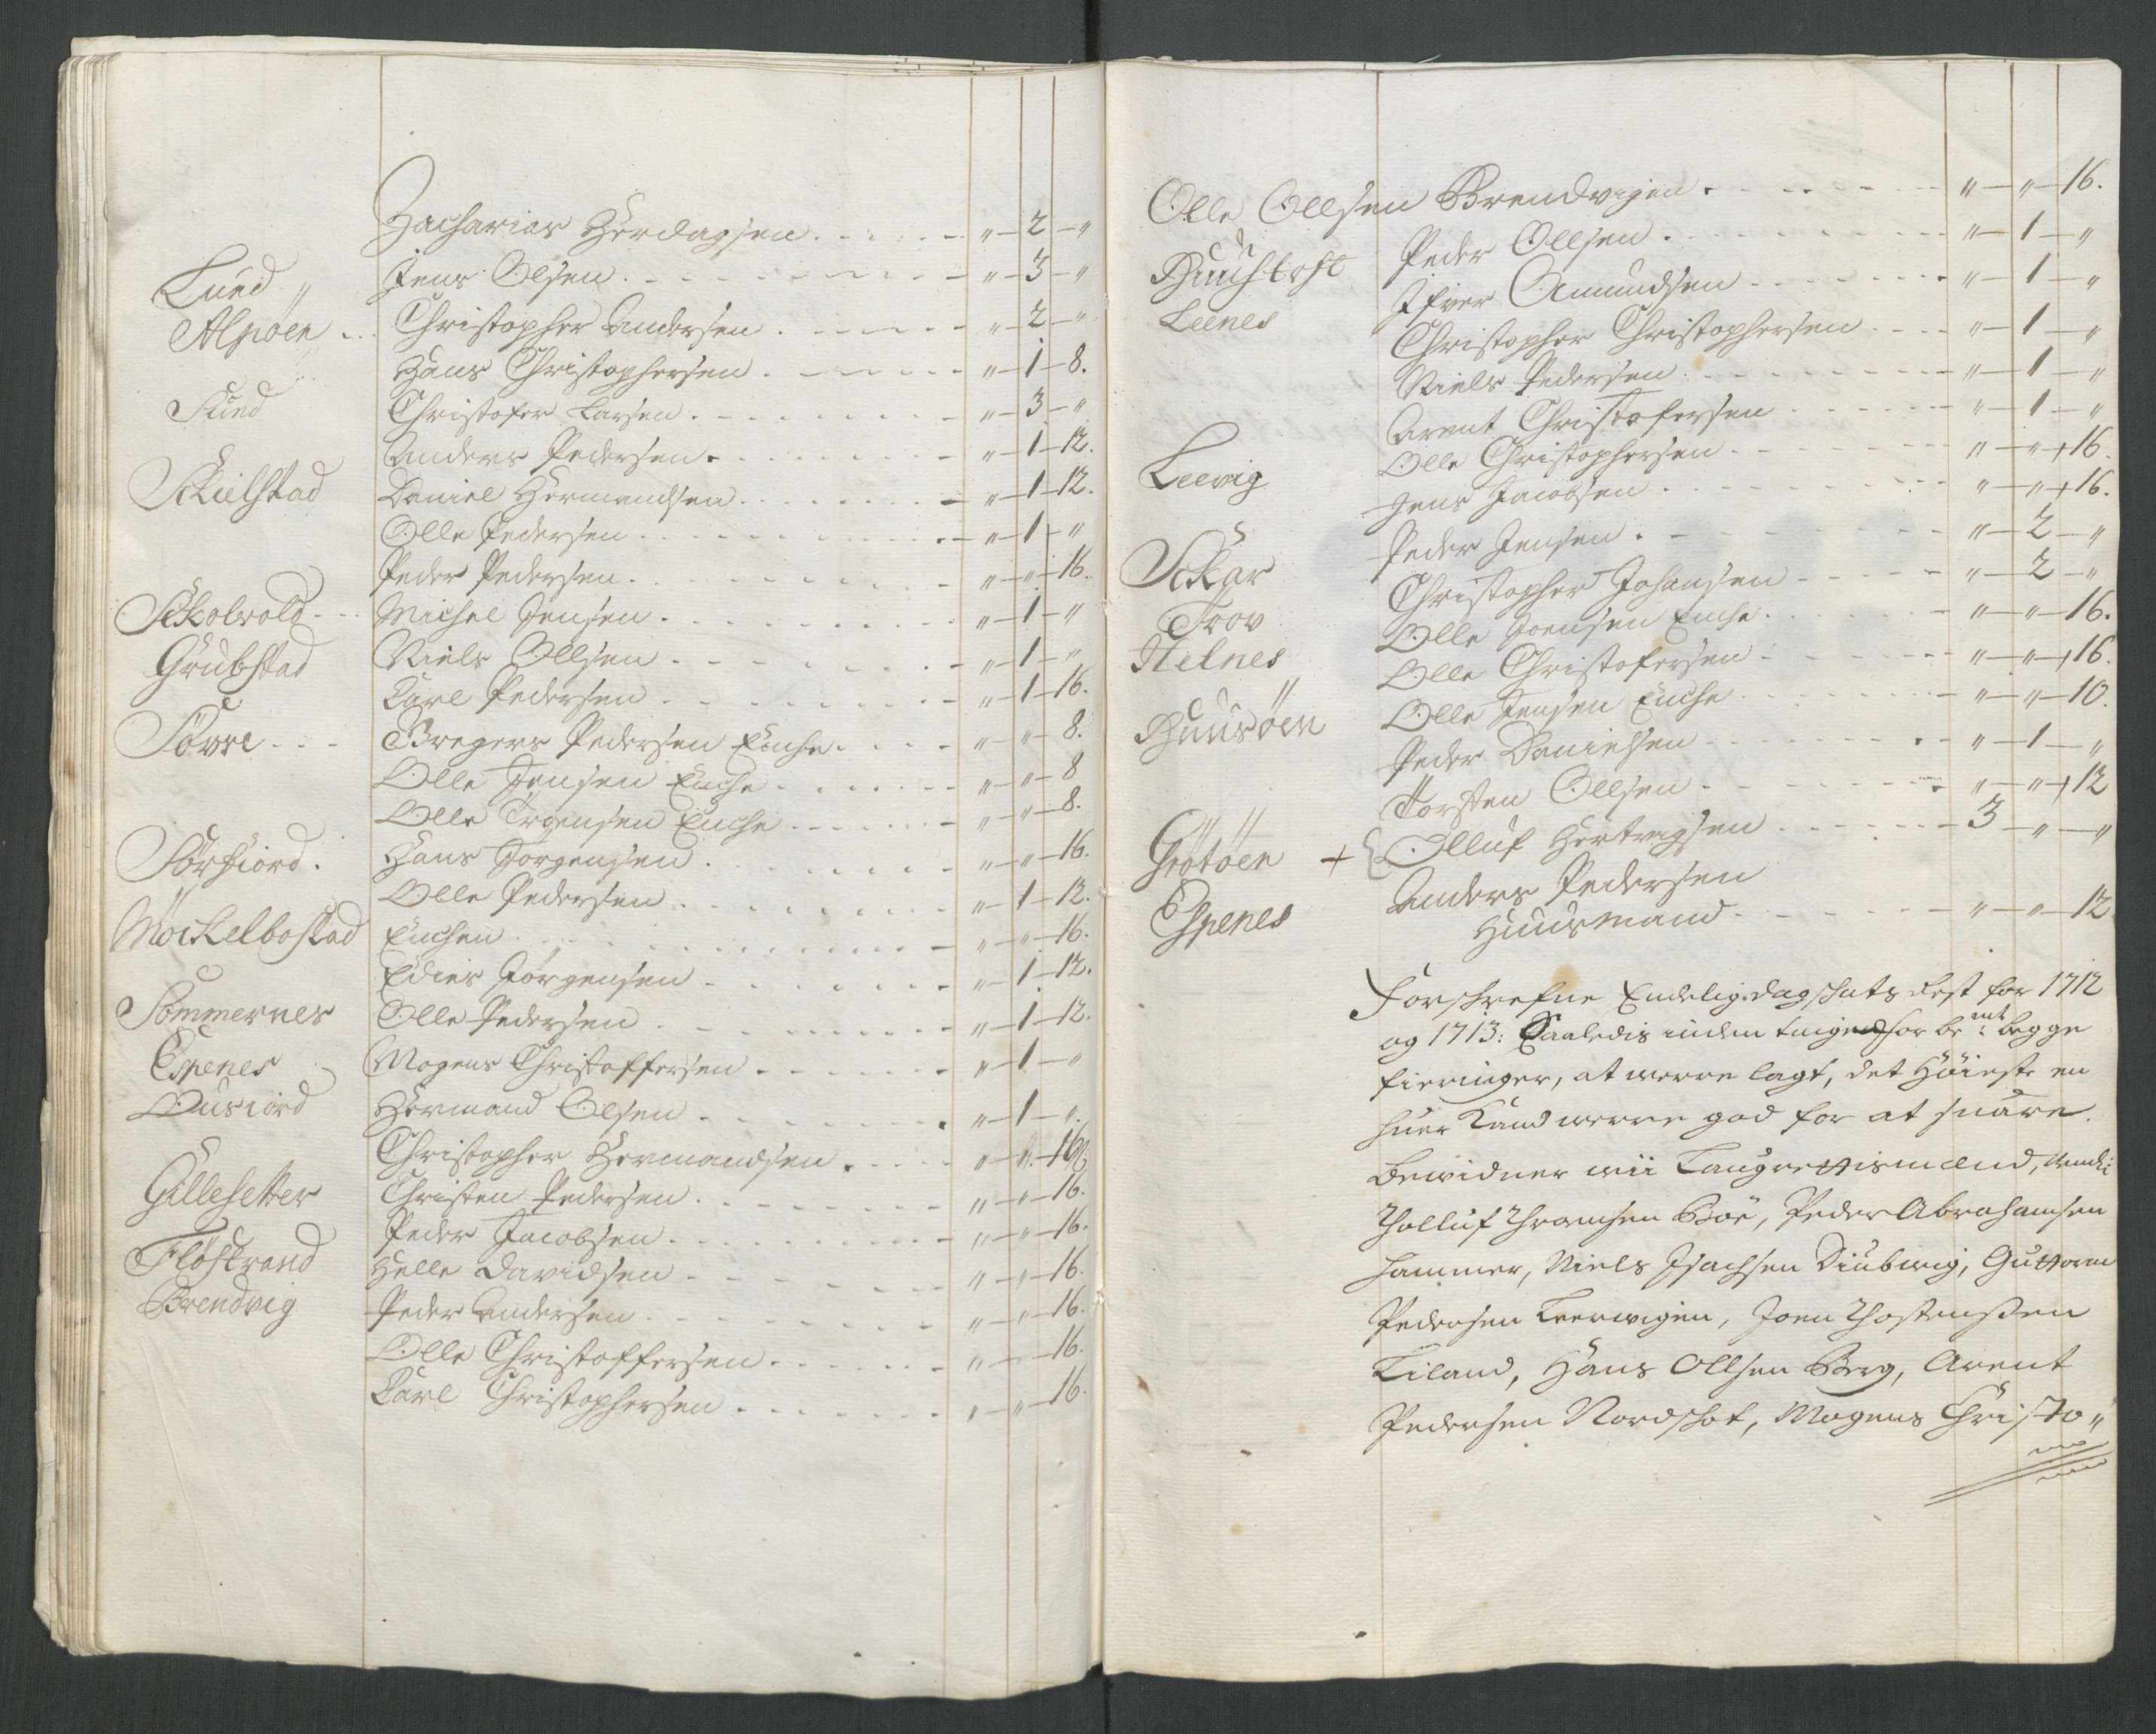 Zacharias Herdagsen . - - - - " - 2 - "
Lund " Jens Olsen . - - - - " - 3 - "
Alpöen . . Christopher Andersen . - - - - " - 2 - "
Hans Christophersen . - - - - " - 1 - 8.
Sund Christofer Larsen . - - - - " - 3 - "
Anders Pedersen . - - - - " - 1 - 12.
Skielstad Daniel Hermandsen . - - - - " - 1 - 12.
Olle Pedersen . - - - - " - 1 - "
Peder Pedersen . - - - - " - " - 16.
Skolvold - - Michel Jensen . - - - - " - 1 - "
Grubstad Niels Ollsen . - - - - " - 1 - "
Carl Pedersen . - - - - " - 1 - 16.
Törre - - - Bregers Pedersen Enche . - - - " - " - 8.
Olle Jensen Enche . - - - - " - " - 8
Olle Trogensen Enche . - - - - " - " - 8.
Sörfiord . Hans Jörgensen . - - - - " - " - 16.
Olle Pedersen . - - - - " - 1 - 12.
Möckelbostad Enchen . - - - - " - " - 16.
Edies Jörgensen . - - - - " - 1 - 12.
Sommernes Olle Pedersen . - - - - " - 1 - 12.
Espenes Mogens Christoffersen . - - - - " - 1 - "
Ousiord Hermand Olsen . - - - - " - 1 - "
Christopher Hermandsen . - - - - " - " - 16
Gillesetter Christen Pedersen . - - - - " - " - 16.
Peder Jacobsen . - - - - " - " - 16.
Flöstrand Helle Davidsen - - - - " - " - 16.
Brendvig Peder Andersen . - - - - " - " - 16.
Olle Christoffersen . - - - - " - " - 16.
Carl Christophersen . - - - - " - " - 16.
Olle Ollsen Brendvigen . - - - - " - " - 16.
Peder Ollsen . - - - - " - 1 - "
Huustoft Ifver Amundsen - - - - " - 1 - "
Leenes Christopher Christophersen - - - - " - 1 - "
Niels Pedersen . - - - - " - 1 - "
Arent Christofersen - - - - " - 1 - "
Leevig Olle Christophersen . - - - - " - " + 16.
Jens Jacobsen . - - - - " - " + 16.
Peder Jensen . - - - - " - 2 - "
Skar Christopher Johansen - - - - " - 2 - "
Trov Olle Joensen Enche . - - - - " - " - 16.
Helnes Olle Christofersen - - - - " - " + 16.
Olle Jensen Enche - - - - " - " - 10.
Huusöen Peder Danielsen - - - - " - 1 - "
Torsten Ollsen - - - - " - " + 12
Grötöen + Olluf Hertvigsen - - - - 3 - " - "
Espenes Anders Pedersen
Huusmand - - - - " - " - 12
Forschrefne Endelig dagschats Rest for 1712
og 1713: Saaledis inden tinged for be.mt begge
fieringer, at were lagt, det Höieste en
huer Kand were god for at suare.
Bewidner wii Laugrettismænd,
Tholluf Thromsen Böe, Peder Abrahamsen
Hammer, Niels Isachsen Diubvig, Guttorm
Pedersen Leervigen, Joen Thostensen
Liland, Hans Ollsen Berg, Arent
Pedersen Nordschot, Mogens Christo"